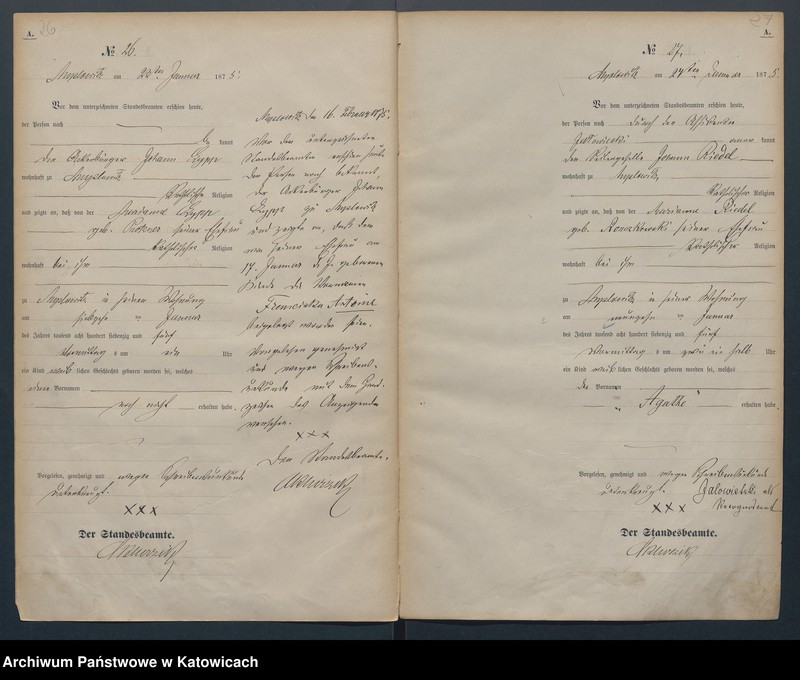 26
A.
№ 26.
Myslowitz am 22ten Januar 1875.
Vor dem unterzeichneten Standesbeamten erschien heute,
der Person nach
kannt
der Ackerbürger Johann
wohnhaft zu Myslowitz
Katholischer Religion
und zeigte an, daß von der Marianna
geb. seiner Ehefrau
Katholischer Religion
wohnhaft bei ihm
zu Myslowitz in seiner Wohnung
am siebzehn ten Januar
des Jahres tausend acht hundert siebenzig und fünf
Vormittag s um ein Uhr
ein Kind weib lichen Geschlechts geboren worden sei, welches
einen Vornamen
noch nicht erhalten habe.
Vorgelesen, genehmigt und wegen Schreibensunkunde
unterkreuzt.
XXX
Der Standesbeamte.
Myslowitz den 16. Februar 1875.
Vor dem unterzeichneten
Standesbeamten erschien heute
der Person nach bekannt,
der Ackerbürger Johann
zu Myslowitz
und zeigte an, daß dem
von seiner Ehefrau am
17. Januar d. J. geborenen
Kinde die Vornamen
Franciska Antonie
beigelegt worden seien.
Vorgelesen genehmigt
und wegen Schreibens-
unkunde mit dem Hand-
zeichen des Anzeigenden
versehen.
XXX
Der Standesbeamte.
27
A.
№ 27.
Myslowitz am 24ten Januar 1875.
Vor dem unterzeichneten Standesbeamten erschien heute,
der Person nach durch den
kannt
Johann Riedel
wohnhaft zu Myslowitz
Katholischer Religion
und zeigte an, daß von der Marianna Riedel
geb. seiner Ehefrau
Katholischer Religion
wohnhaft bei ihm
zu Myslowitz in seiner Wohnung
am neunzehn ten Januar
des Jahres tausend acht hundert siebenzig und fünf
Vormittag s um halb Uhr
ein Kind weib lichen Geschlechts geboren worden sei, welches
den Vornamen
"Agathe" erhalten habe.
Vorgelesen, genehmigt und wegen Schreibensunkunde
unterkreuzt. als
XXX
Der Standesbeamte.
Archiwum Państwowe w Katowicach